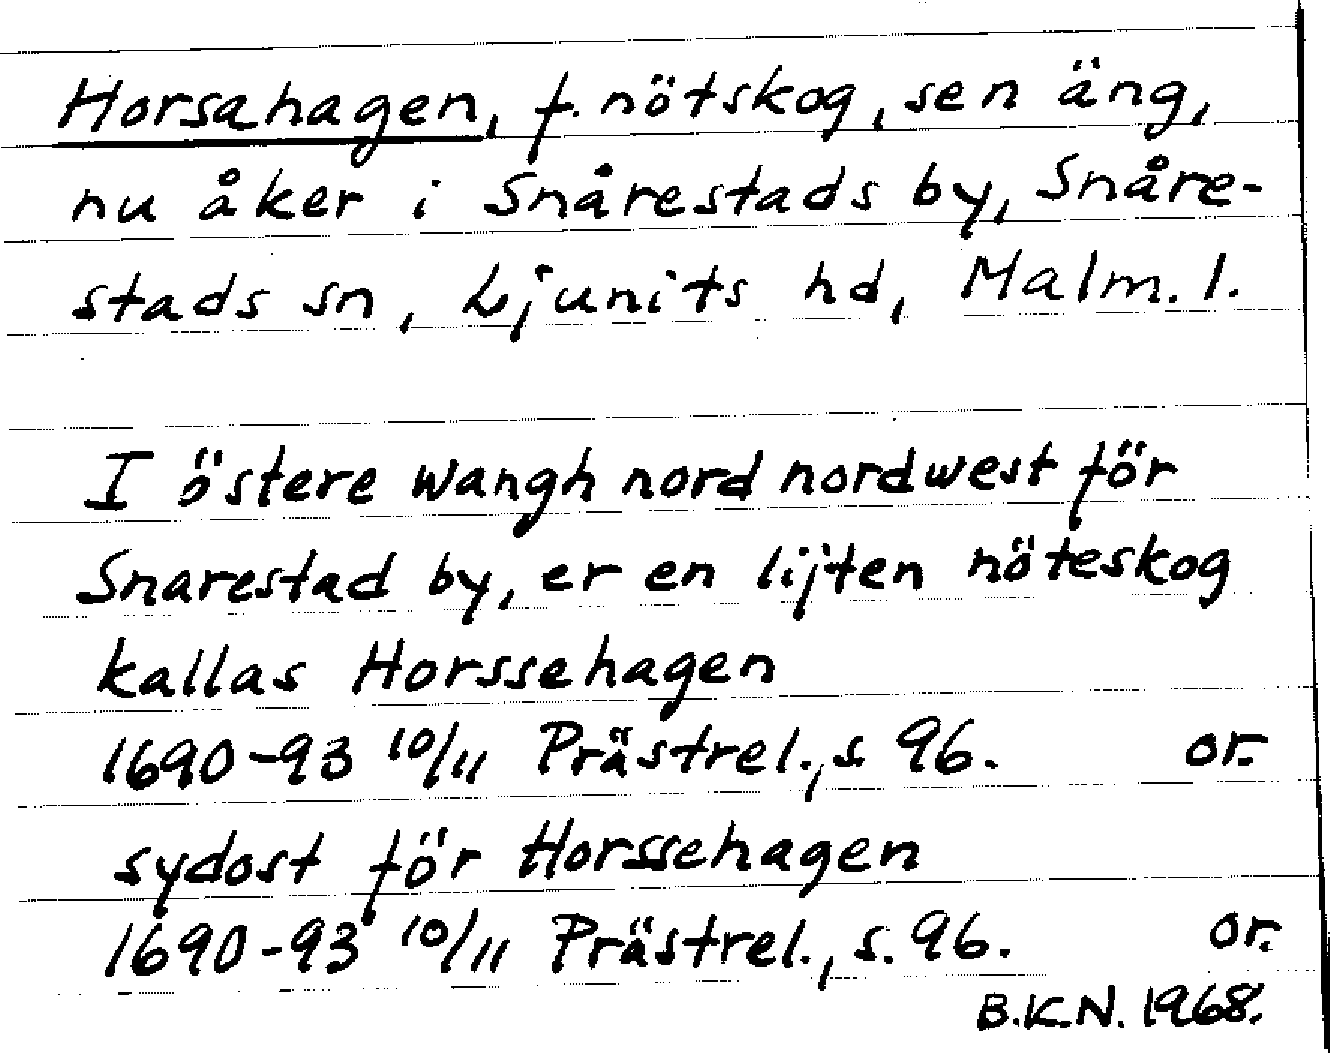 Horsahagen, f. nötskog, sen äng,
nu åker i Snårestads by, Snåre-
stads sn, Ljunits hd, Malm. l.
I östere wangh nord nordwest för
Snarestad by, er en lijten nöteskog
kallas Horssehagen
1690-93 10/11 Prästrel., s. 96. or.
sydost för Horssehagen
1690-93 10/11 Prästrel., s. 96. or.
B.K.N. 1968.